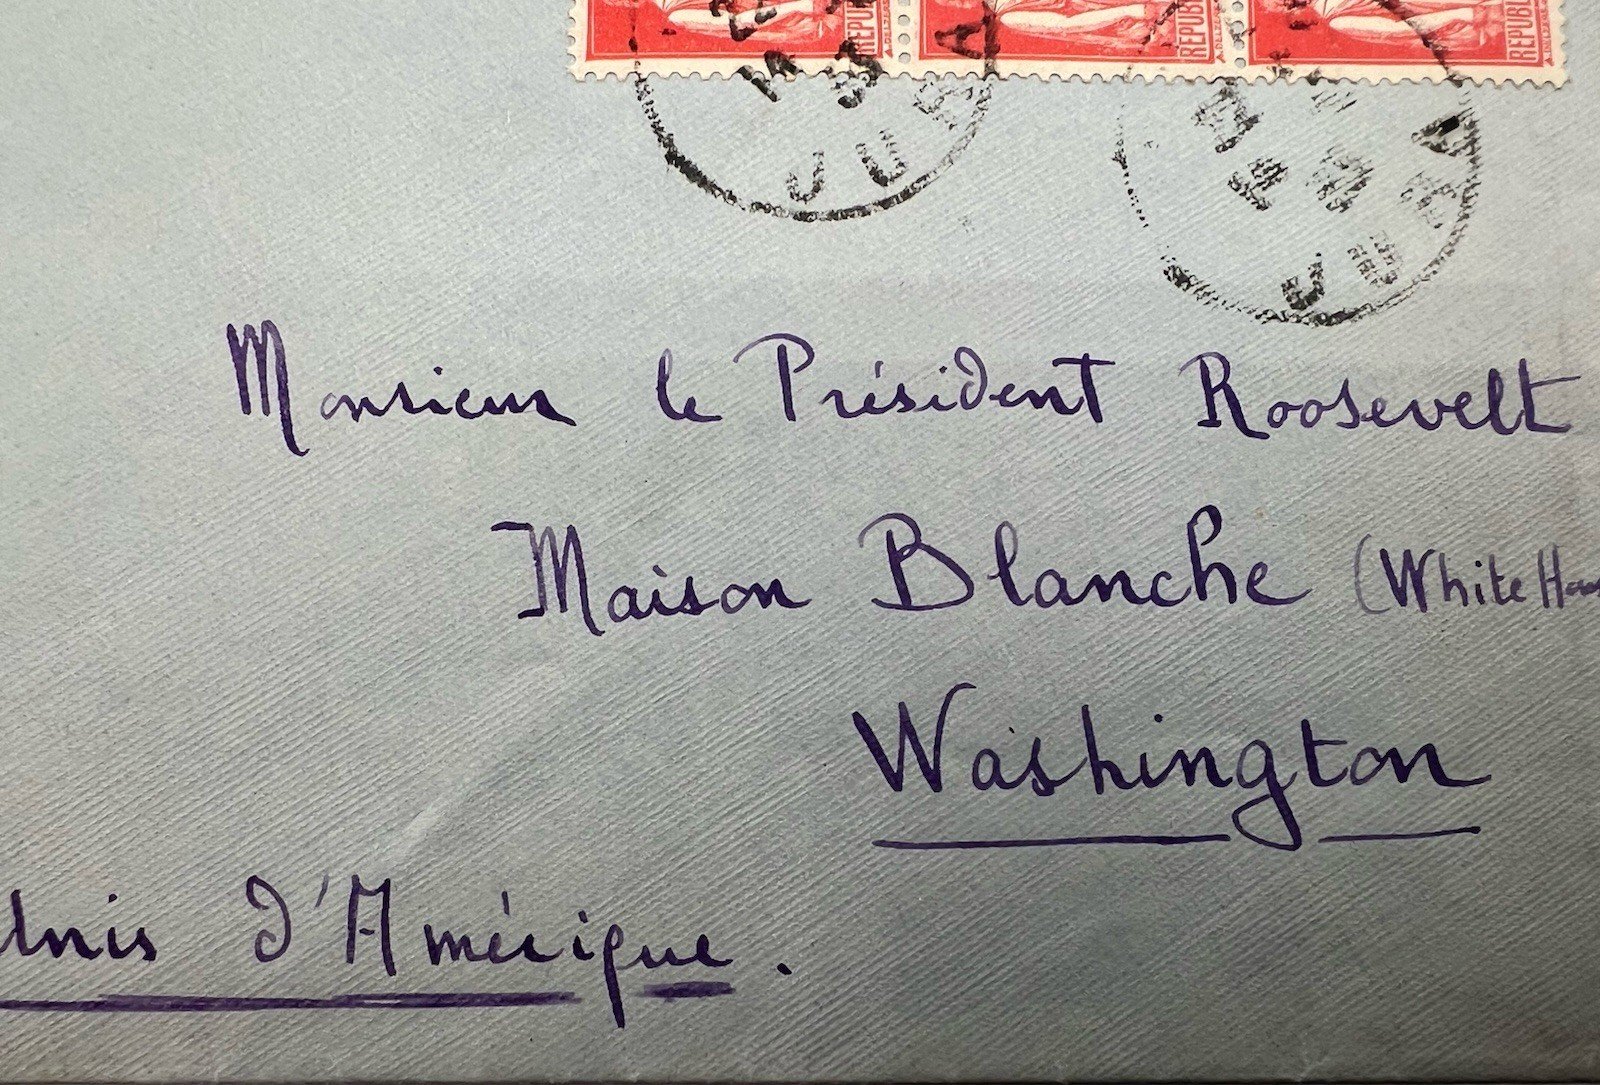 REPUB REPUBL REPUBL
Monsieur le Président Roosevelt
Maison Blanche (White Hous
Washington
Unis d'Amérique.